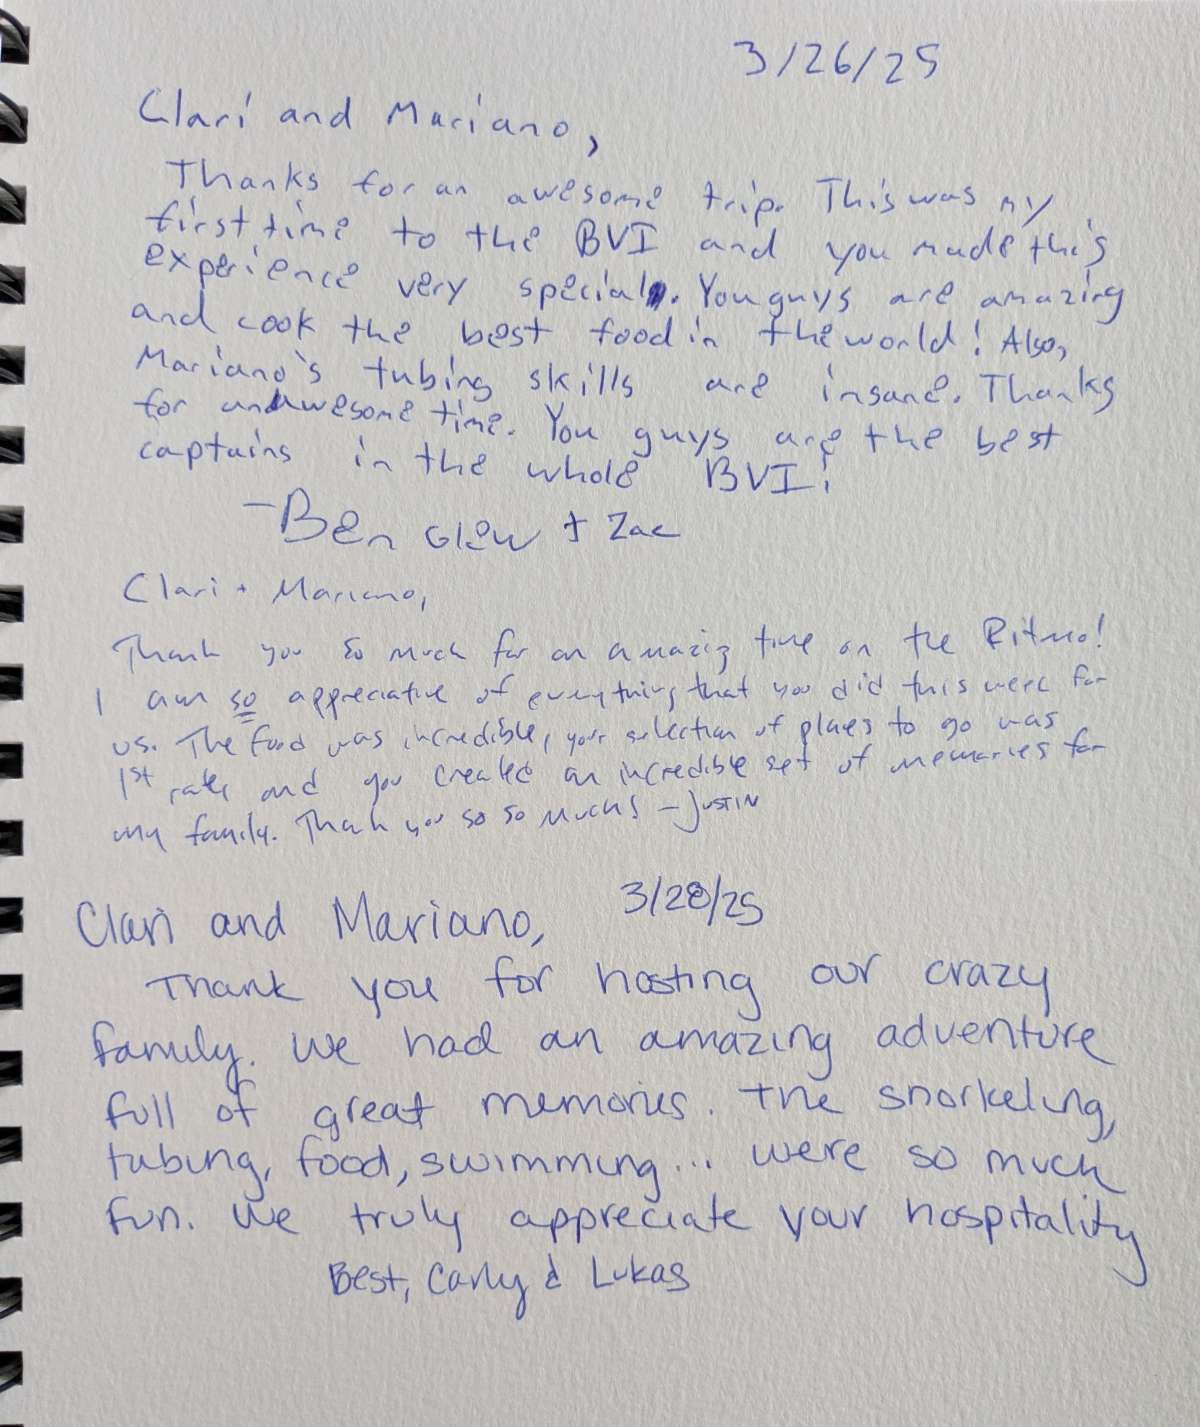 3/26/25
Clari and Mariano,
Thanks for an awesome trip. This was my
first time to the BVI and you made this
experience very special. You guys are amazing
and cook the best food in the world! Also,
Mariano's tubing skills are insane. Thanks
for an awesome time. You guys are the best
captains in the whole BVI!
-Ben Glew + Zac
Clari + Mariano,
Thank you so much for an amazing time on the Ritmo!
I am so appreciative of everything that you did this week for
us. The food was incredible, your selection of places to go was
1st rate and you created an incredible set of memories for
my family. Thank you so so much! - Justin
Clari and Mariano, 3/28/25
Thank you for hosting our crazy
family. We had an amazing adventure
full of great memories. The snorkeling,
tubing, food, swimming... were so much
fun. We truly appreciate your hospitality
Best, Carly & Lukas